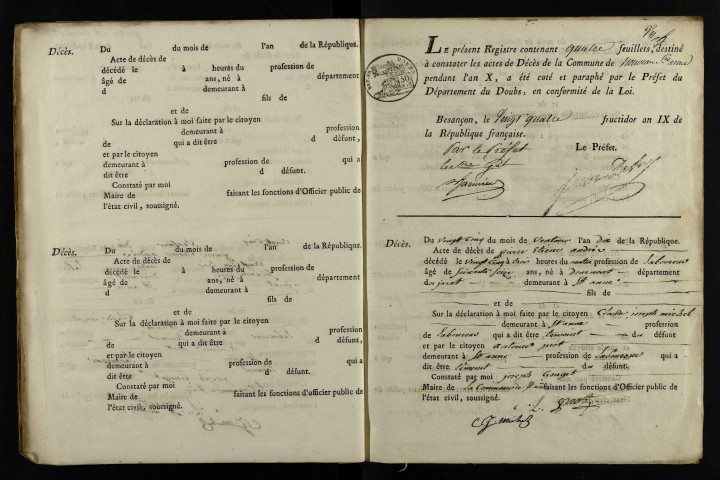 Décès. Du du mois de l'an de la République.
Acte de décès de
décédé le à heures du profession de
âgé de ans, né à département
d demeurant à
fils de
et de
Sur la déclaration à moi faite par le citoyen
demeurant à profession
de qui a dit être d défunt,
et par le citoyen
demeurant à profession de qui a
dit être d défunt.
Constaté par moi
Maire de faisant les fonctions d'Officier public de
l'état civil, soussigné.
Décès. Du du mois de l'an de la République.
Acte de décès de
décédé le à heures du profession de
âgé de ans, né à département
d demeurant à
fils de
et de
Sur la déclaration à moi faite par le citoyen
demeurant à profession
de qui a dit être d défunt,
et par le citoyen
demeurant à profession de qui a
dit être d défunt.
Constaté par moi
Maire de faisant les fonctions d'Officier public de
l'état civil, soussigné.
LE présent Registre contenant quatre feuillets, destiné
à constater les actes de Décès de la Commune de
pendant l'an X, a été coté et paraphé par le Préfet du
Département du Doubs, en conformité de la Loi.
Besançon, le Vingt quatre fructidor an IX de
la République française.
Par le Préfet Le Préfet.
Décès. Du vingt cinq du mois de ventose l'an Dix de la République.
Acte de décès de pierre Etiene andré
décédé le vingt cinq à trois heures du matin profession de Laboureur
âgé de soixante seize ans, né à département
du jura demeurant à St anne
fils de
et de
Sur la déclaration à moi faite par le citoyen Claude joseph michel
demeurant à St anne profession
de Laboureur qui a dit être du défunt,
et par le citoyen antoine
demeurant à St anne profession de Laboureur qui a
dit être du défunt.
Constaté par moi joseph
Maire de La Commune de faisant les fonctions d'Officier public de
l'état civil, soussigné.